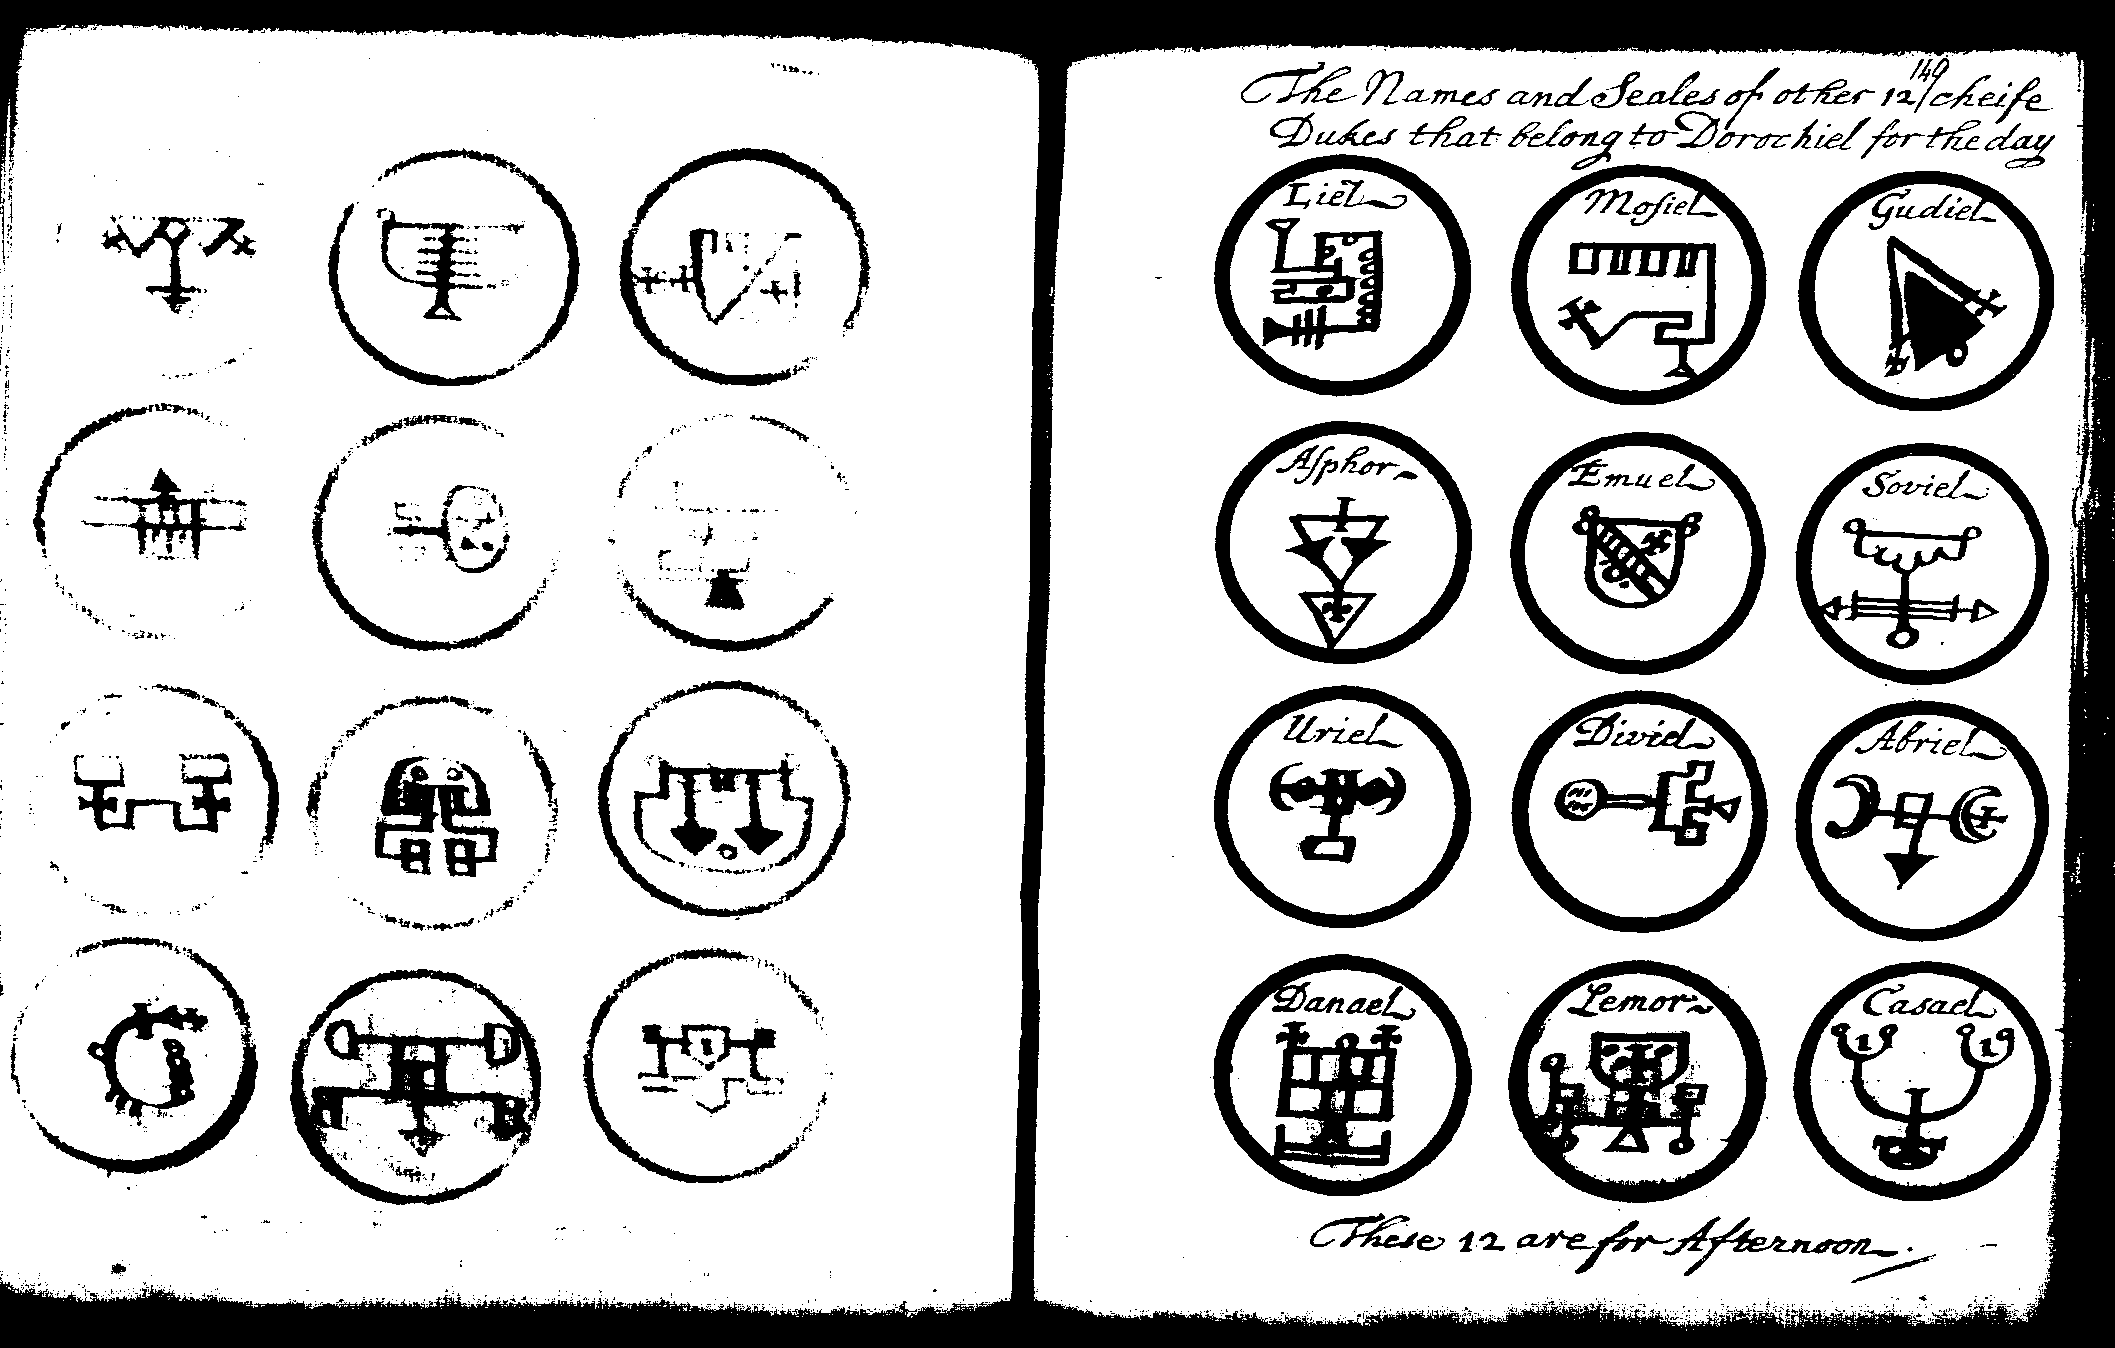 149
The Names and Seales of other 12 cheife
Dukes that belong to Dorochiel for the day
Liel Mosiel Gudiel
Asphor Emuel Soviel
Uriel Diviel Abriel
Danael Lemor Casael
These 12 are for Afternoon.